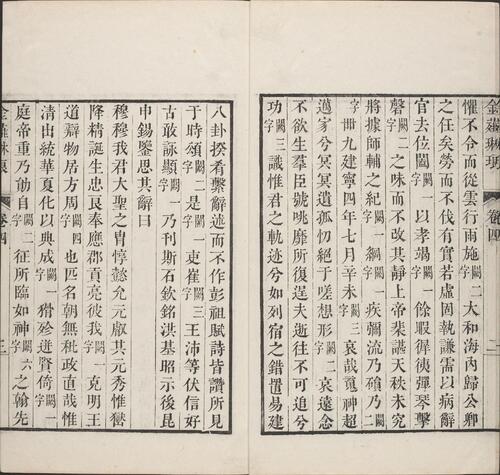 金薤琳琅 卷四 二
懼不令而從雲行雨施闕二字大和海內歸公卿
之任矣勞而不伐有實若虛固執謙需以病辭
官去位闔闕一字以孝竭闕一字餘暇徘徊彈琴擊
磬闕二字之味而不改其靜上帝棐諶天秩未究
將據師輔之紀闕一字綱闕一字疾彌流乃磒乃闕二字
卌九建寧四年七月辛未闕三字哀哉魂神超
邁家兮冥冥遺孤忉絕于嗟想形闕二字哀遠念
不欲生羣臣號咷靡所復逞夫逝往不可追兮
功闕三字識惟君之軌迹兮如列宿之錯置易建
八卦揆肴繫辭述而不作彭祖賦詩皆讚所見
于時頌闕二字是闕一字吏崔闕三字王沛等伏信好
古敢詠顯闕一字乃刊斯石欽銘洪基昭示後昆
申錫鑒思其辭曰
穆穆我君大聖之胄惇懿允元叡其元秀惟嶽
降精誕生忠良奉應郡貢亮彼我闕一字克明王
道辯物居方周闕四字也匹名朝無秕政直哉惟
清出統華夏化以典成闕一字猾殄迸賢倚闕一字
庭帝重乃勛自闕二字征所臨如神闕六字之翰先
金薤琳琅 卷四 三